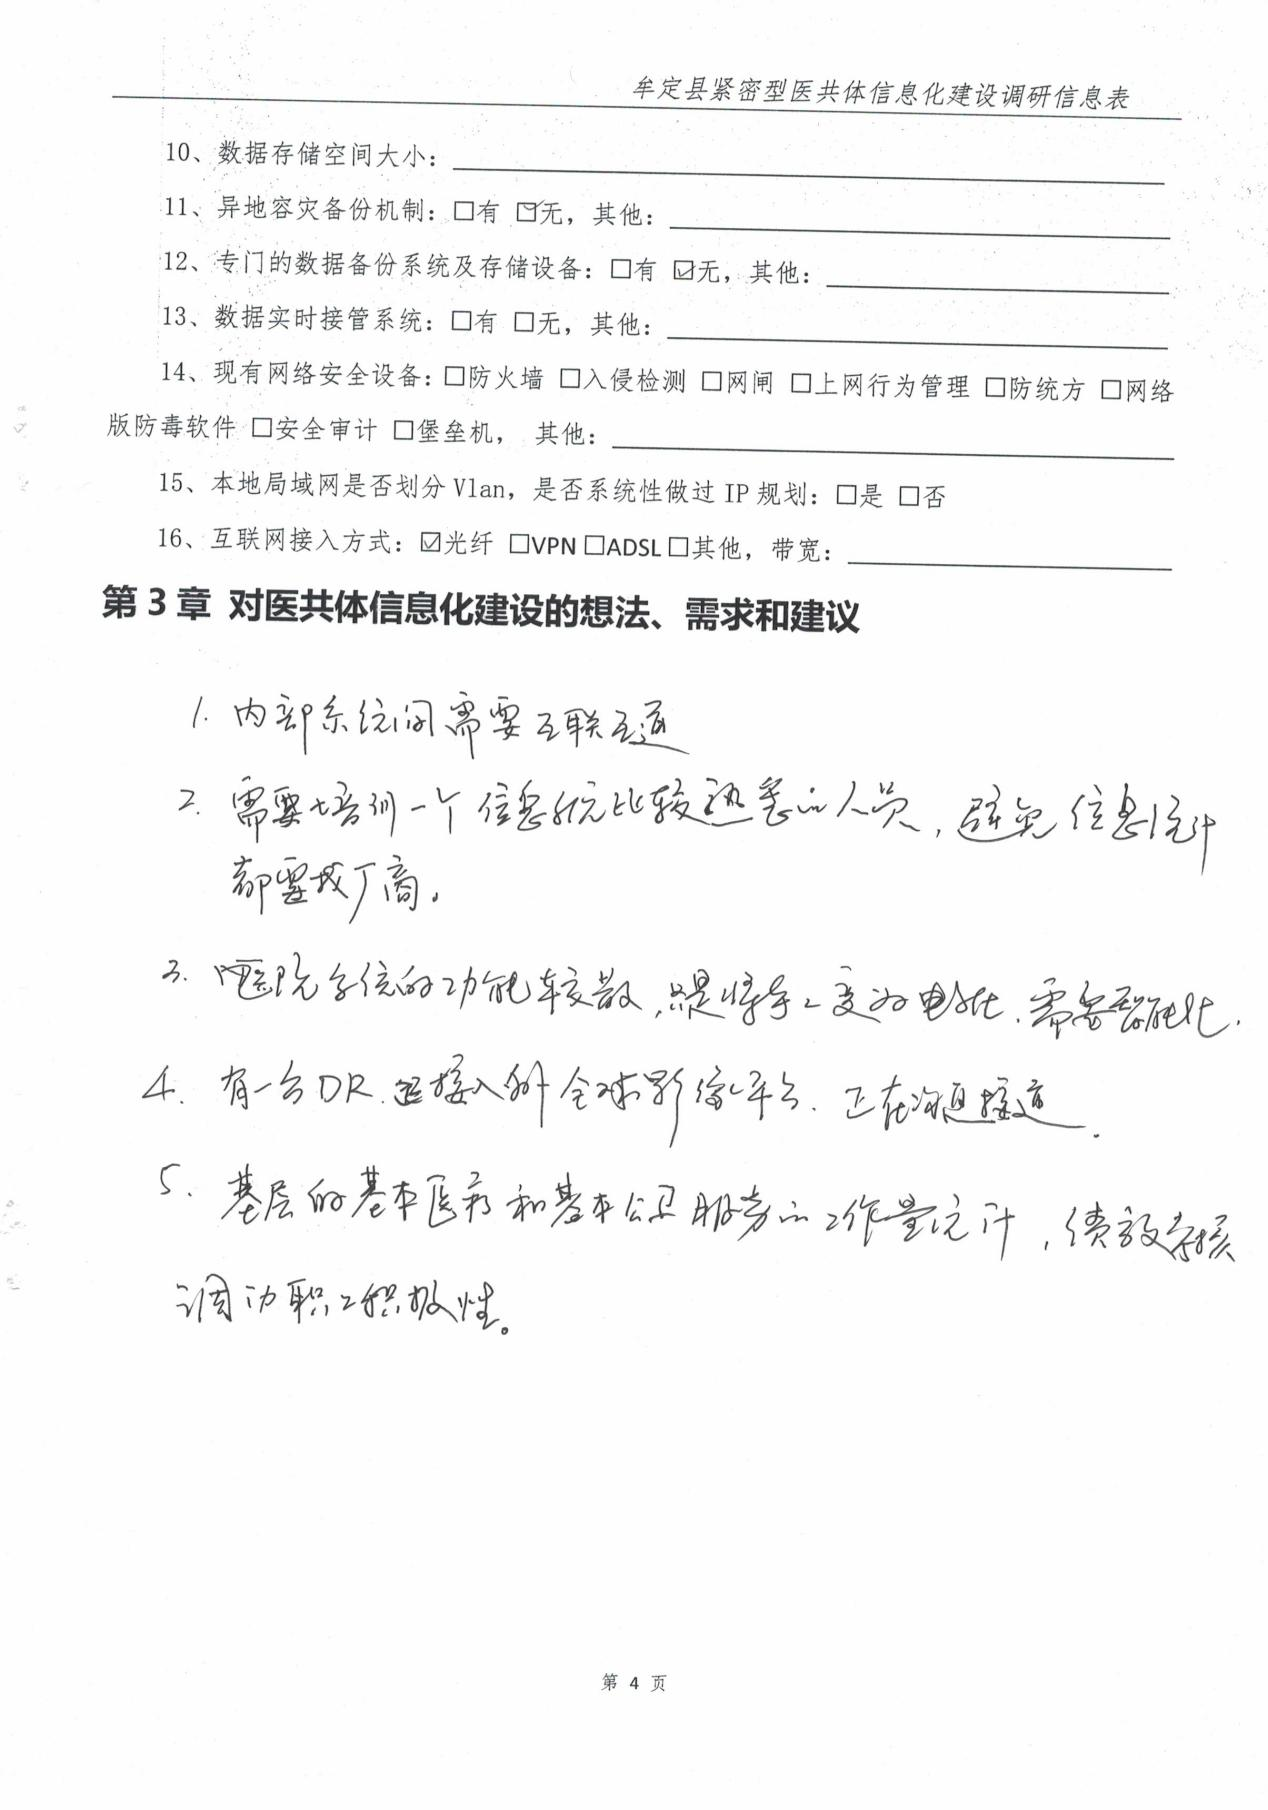 牟定县紧密型医共体信息化建设调研信息表
10、数据存储空间大小：
11、异地容灾备份机制：□有 ☑无，其他：
12、专门的数据备份系统及存储设备：□有 ☑无，其他：
13、数据实时接管系统：□有 □无，其他：
14、现有网络安全设备：□防火墙 □入侵检测 □网闸 □上网行为管理 □防统方 □网络
版防毒软件 □安全审计 □堡垒机， 其他：
15、本地局域网是否划分 Vlan，是否系统性做过 IP 规划：□是 □否
16、互联网接入方式：☑光纤 □VPN □ADSL □其他，带宽：
第 3 章 对医共体信息化建设的想法、需求和建议
1. 内部系统间需要互联互通
2. 需要培训一个信息系统比较熟悉的人员，避免信息统计
都要找厂商。
3. 医院系统的功能较散，只是将手工变为电子化，需要智能化.
4. 有一台DR. 接入 全球影像平台. 正在沟通接通.
5. 基层的基本医疗和基本公卫服务的工作量统计，绩效考核
调动职工积极性。
第 4 页